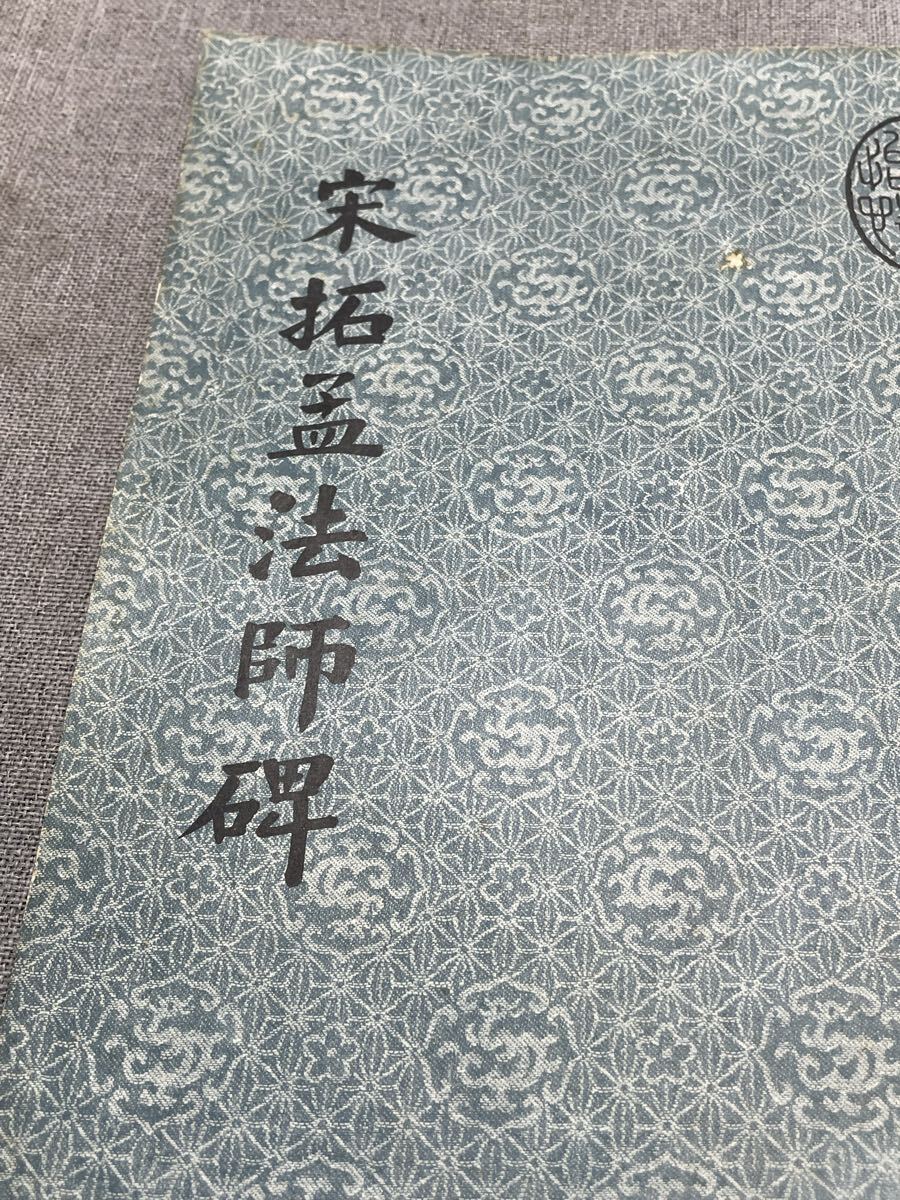 宋拓孟法師碑